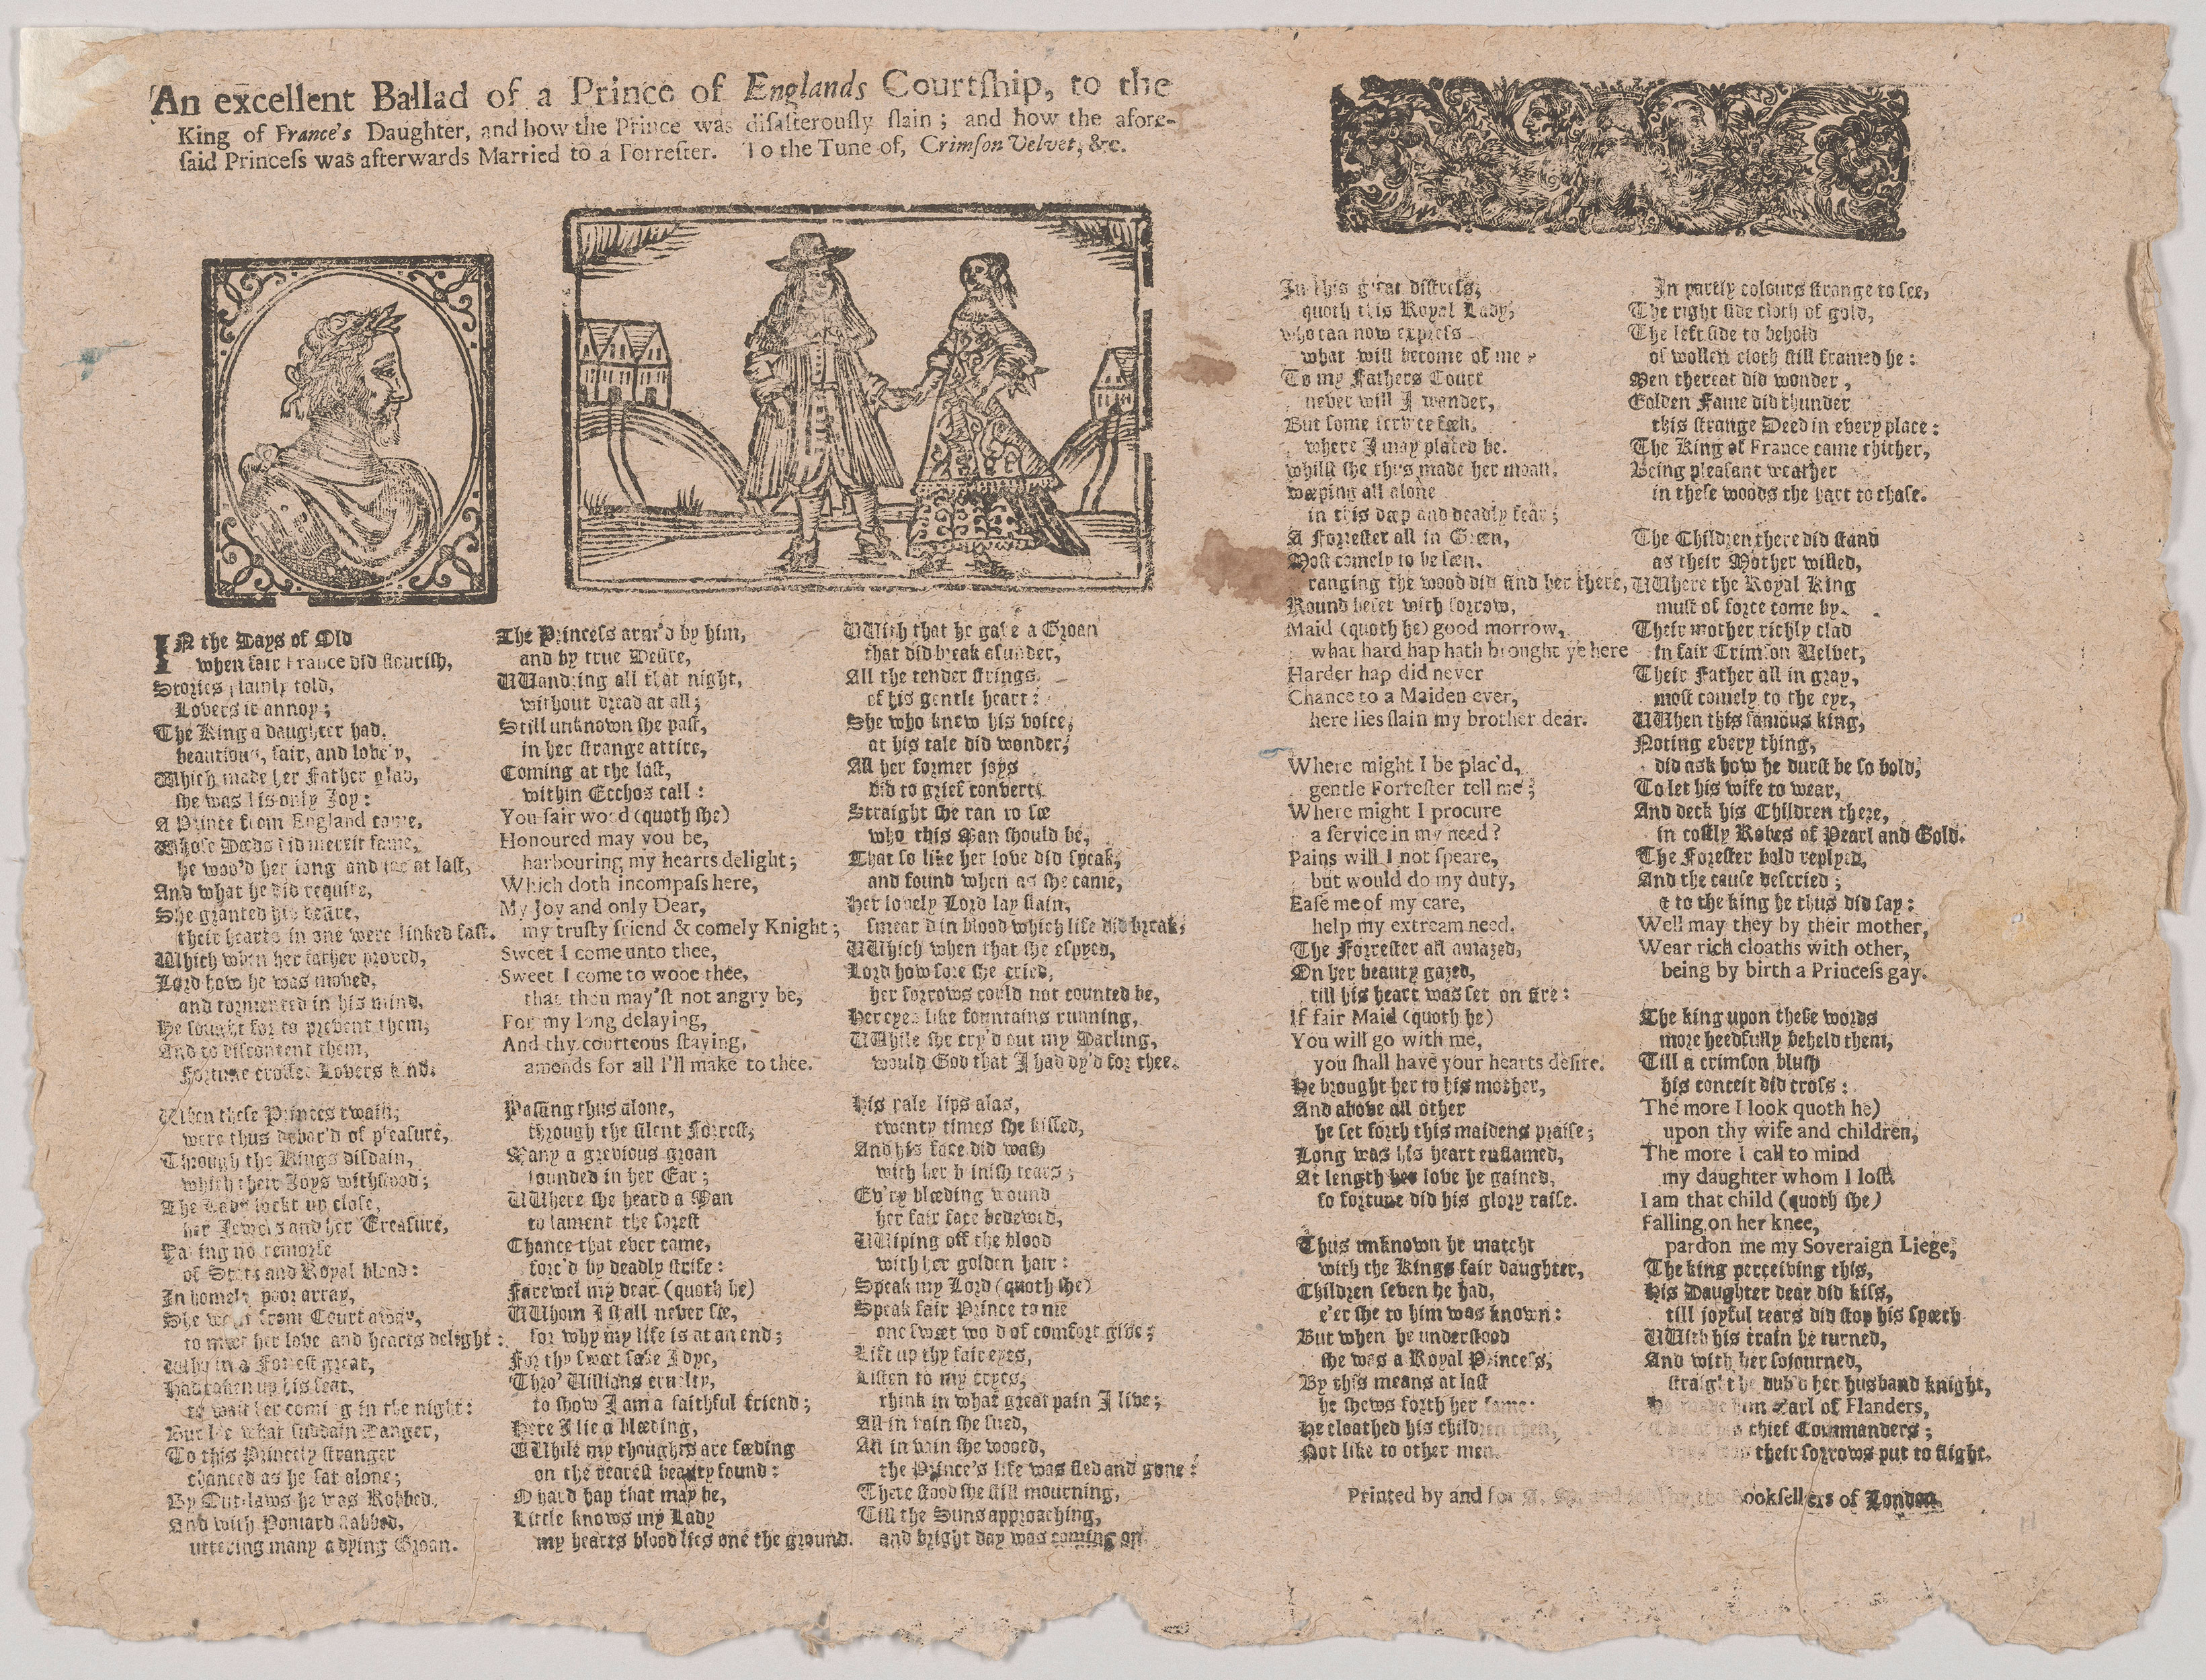 An excellent Ballad of a Prince of Englands Courtſhip, to the
King of France's Daughter, and how the Prince was diſaſterouſly ſlain; and how the afore-
ſaid Princeſs was afterwards Married to a Forreſter. To the Tune of, Crimſon Velvet, &c.
IN the Days of Old
when fair France did flouriſh,
Stories plainly told,
Lovers annoy;
The King a daughter had,
beautious, fair, and lovely,
Which made her Father glad,
ſhe was his only Joy:
A Prince from England came,
Whoſe Deeds did mereit fame,
he woo'd her long and at laſt,
And what he did require,
She granted his deſire,
their hearts in one were linked faſt.
Which when her father proved,
Lord how he was moved,
and tormented in his mind,
He ſought for to prevent them;
And to diſcontent them,
Fortune croſſes Lovers kind.
When theſe Princes twain,
were thus debar'd of pleaſure,
Through the Kings diſdain,
which their Joys withſtood;
The Lady lockt up cloſe,
her Jewels and her Treaſure,
Having no remorſe
of State and Royal blood:
In homely poor array,
She went from Court away,
to meet her love and hearts delight:
Who in a Forreſt great,
Had taken up his ſeat,
to wait her coming in the night:
But ſuddain Danger,
To this Princely ſtranger
chanced as he ſat alone;
By Out-laws he was Robbed,
And with Poniard ſtabbed,
uttering many a dying Groan.
The Princeſs arm'd by him,
and by true Deſire,
Wandring all that night,
without dread at all;
Still unknown ſhe paſt,
in her ſtrange attire,
Coming at the laſt,
within Ecchos call:
You fair wood (quoth ſhe)
Honoured may you be,
harbouring my hearts delight;
Which doth incompaſs here,
My Joy and only Dear,
my truſty friend & comely Knight;
Sweet I come unto thee,
Sweet I come to wooe thee,
that thou may'ſt not angry be,
For my long delaying,
And thy courteous ſtaying,
amends for all I'll make to thee.
Paſſing thus alone,
through the ſilent Forreſt,
Many a grevious groan
ſounded in her Ear;
Where ſhe heard a Man
to lament the ſoreſt
Chance that ever came,
forc'd by deadly ſtrife:
Farewel my dear (quoth he)
Whom I ſhall never ſee,
for why my life is at an end;
For thy ſweet ſake I dye,
Thro' Villians cruelty,
to ſhow I am a faithful friend;
Here I lie a bleeding,
While my thoughts are feeding
on the deareſt beauty found:
O hard hap that may be,
Little knows my Lady
my hearts blood lies one the ground.
With that he gave a Groan
that did break aſunder,
All the tender ſtrings
of his gentle heart:
She who knew his voice,
at his tale did wonder,
All her former joys
did to grief convert,
Straight ſhe ran to ſee
who this Man ſhould be,
That ſo like her love did ſpeak,
and found when as ſhe came,
Her lovely Lord lay ſlain,
ſmear'd in blood which life did break,
Which when that ſhe eſpyed,
Lord how ſore ſhe cried,
her ſorrows could not counted be,
Her eyes like fountains running,
While ſhe cry'd out my Darling,
would God that I had dy'd for thee.
His pale lips alas,
twenty times ſhe kiſſed,
And his face did waſh
with her briniſh tears;
Ev'ry bleeding wound
her fair face bedewed,
Wiping off the blood
with her golden hair:
Speak my Lord (quoth ſhe)
Speak fair Prince to me
one ſweet word of comfort give;
Lift up thy fair eyes,
Liſten to my cryes,
think in what great pain I live;
All in vain ſhe ſued,
All in vain ſhe wooed,
the Prince's life was fled and gone:
There ſtood ſhe ſtill mourning,
Till the Suns approaching,
and bright day was coming on.
In this great diſtreſs,
quoth this Royal Lady,
who can now expreſs
what will become of me?
To my Fathers Court
never will I wander,
But ſome ſervice ſeek,
where I may placed be.
Whilſt ſhe thus made her moan,
weeping all alone
in this deep and deadly fear;
A Forreſter all in Green,
Moſt comely to be ſeen,
ranging the wood did find her there,
Round beſet with ſorrow,
Maid (quoth he) good morrow,
what hard hap hath brought ye here
Harder hap did never
Chance to a Maiden ever,
here lies ſlain my brother dear.
Where might I be plac'd,
gentle Forreſter tell me;
Where might I procure
a ſervice in my need?
Pains will I not ſpeare,
but would do my duty,
Eaſe me of my care,
help my extream need.
The Forreſter all amazed,
On her beauty gazed,
till his heart was ſet on fire:
If fair Maid (quoth he)
You will go with me,
you ſhall have your hearts deſire.
He brought her to his mother,
And above all other
he ſet forth this maidens praiſe;
Long was his heart enflamed,
At length her love he gained,
ſo fortune did his glory raiſe.
Thus unknown he matcht
with the Kings fair daughter,
Children ſeven he had,
e'er ſhe to him was known:
But when he underſtood
ſhe was a Royal Princeſs,
By this means at laſt
he ſhews forth her fame:
He cloathed his children then,
Not like to other men.
In partly colours ſtrange to ſee,
The right ſide cloth of gold,
The left ſide to behold
of wollen cloth ſtill framed he:
Men thereat did wonder,
Golden Fame did thunder
this ſtrange Deed in every place:
The King of France came thither,
Being pleaſant weather
in theſe woods the hart to chaſe.
The Children there did ſtand
as their Mother willed,
Where the Royal King
muſt of force come by.
Their mother richly clad
in fair Crimſon Velvet,
Their Father all in gray,
moſt comely to the eye,
When this famous king,
Noting every thing,
did ask how he durſt be ſo bold,
To let his wife to wear,
And deck his Children there,
in coſtly Robes of Pearl and Gold.
The Foreſter bold replyed,
And the cauſe deſcried;
& to the king he thus did ſay:
Well may they by their mother,
Wear rich cloaths with other,
being by birth a Princeſs gay.
The king upon theſe words
more heedfully beheld them,
Till a crimſon bluſh
his conceit did croſs:
The more I look quoth he)
upon thy wife and children,
The more I call to mind
my daughter whom I loſt.
I am that child (quoth ſhe)
Falling on her knee,
pardon me my Soveraign Liege,
The king perceiving this,
His Daughter dear did kiſs,
till joyful tears did ſtop his ſpeech
With his train he turned,
And with her ſojourned,
ſtraight he dub'd her huſband knight,
He made him Earl of Flanders,
chief Commanders;
their ſorrows put to flight.
Printed by and for Bookſellers of London.